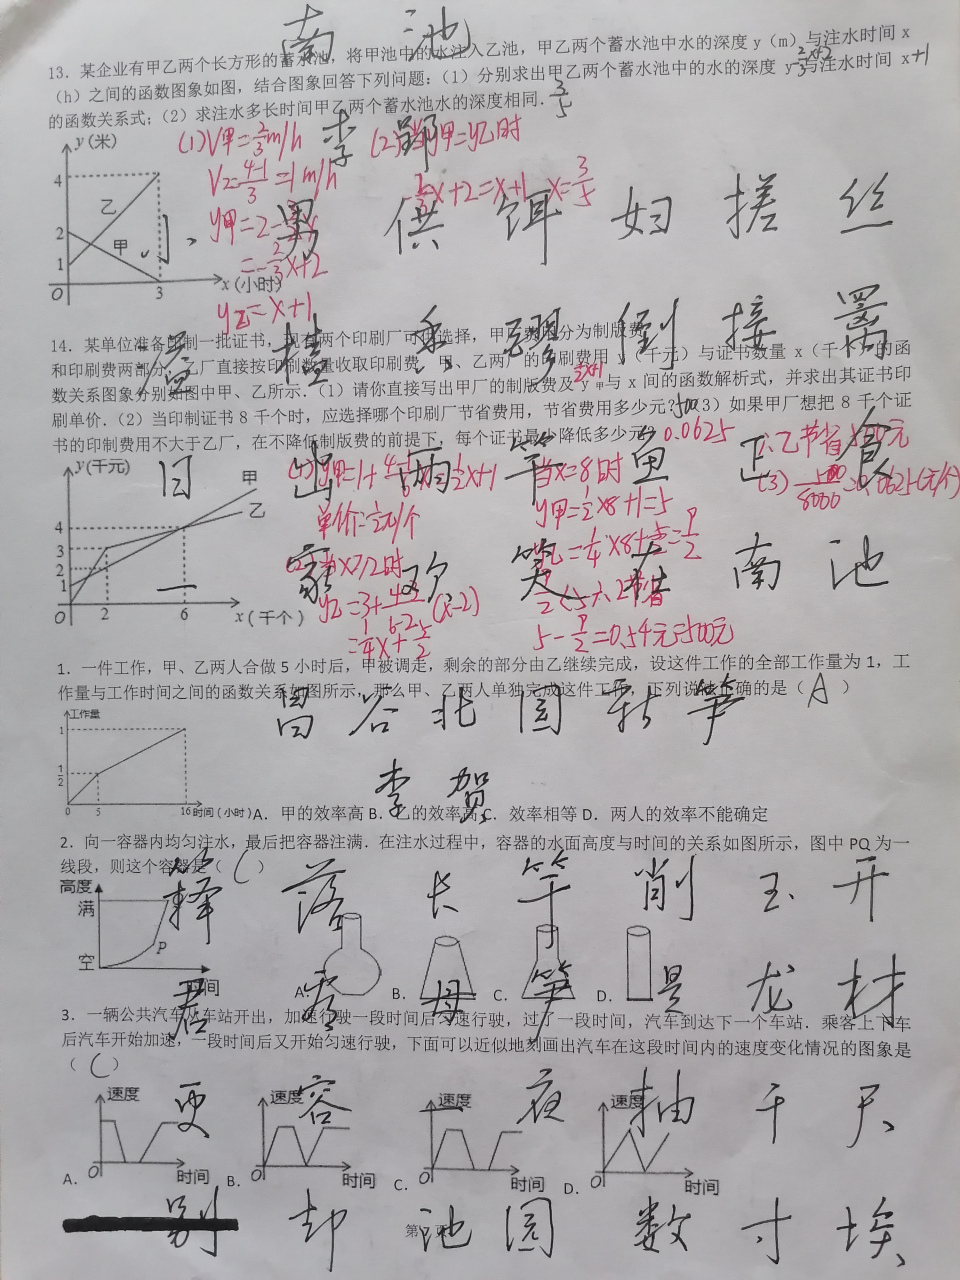 南 池
13. 某企业有甲乙两个长方形的蓄水池,将甲池中的水注入乙池,甲乙两个蓄水池中水的深度 y(m)与注水时间 x
(h)之间的函数图象如图,结合图象回答下列问题:(1)分别求出甲乙两个蓄水池中的水的深度 y 与注水时间 x
x+1
的函数关系式;(2)求注水多长时间甲乙两个蓄水池水的深度相同.
3/5
李
y(米)
4
2
1
O
3
x(小时)
乙
甲
(1)V甲=2/3m/h
V乙=4-1/3=1m/h
=-2/3x+2
y乙=x+1
y甲=y乙时
x+2=x+1 x=3/5
男 供 饵 妇 搓 丝
倒 接 䍦
14. 某单位准备印制一批证书,现有两个印刷厂可供选择,甲厂费用分为制版费
和印刷费两部分,乙厂直接按印刷数量收取印刷费.甲、乙两厂的印刷费用 y(千元)与证书数量 x(千个)的函
数关系图象分别如图中甲、乙所示.(1)请你直接写出甲厂的制版费及 y甲与 x 间的函数解析式,并求出其证书印
刷单价.(2)当印制证书 8 千个时,应选择哪个印刷厂节省费用,节省费用多少元?(3)如果甲厂想把 8 千个证
500
书的印制费用不大于乙厂,在不降低制版费的前提下,每个证书最少降低多少元?
0.0625
y(千元)
4
3
2
1
O
2
6
x(千个)
甲
乙
日 出 两 竿 鱼 正 食
一 家 欢 笑 在 南 池
当x=8时
y甲=1/2×8+1=5
单价=1/2元/个
当x>2时
=1/4x+5/2
5-9/2=0.5千元=500元
1. 一件工作,甲、乙两人合做 5 小时后,甲被调走,剩余的部分由乙继续完成,设这件工作的全部工作量为 1,工
作量与工作时间之间的函数关系如图所示,那么甲、乙两人单独完成这件工作,下列说法正确的是( A )
昌 谷 北 园 新 笋
李 贺
工作量
1
1/2
O
5
16
时间(小时)
A. 甲的效率高 B. 乙的效率高 C. 效率相等 D. 两人的效率不能确定
2. 向一容器内均匀注水,最后把容器注满.在注水过程中,容器的水面高度与时间的关系如图所示,图中 PQ 为一
线段,则这个容器是( C )
箨 落 长 竿 削 玉 开
高度
满
空
P
时间
A.
B.
C.
D.
君 看 母 笋 是 龙 材
3. 一辆公共汽车从车站开出,加速行驶一段时间后匀速行驶,过了一段时间,汽车到达下一个车站.乘客上下车
后汽车开始加速,一段时间后又开始匀速行驶,下面可以近似地刻画出汽车在这段时间内的速度变化情况的图象是
( C )
更 容 夜 抽 千 尺
A. 速度 O 时间
B. 速度 O 时间
C. 速度 O 时间
D. 速度 O 时间
别 却 池 园 数 寸 埃
第 7 页